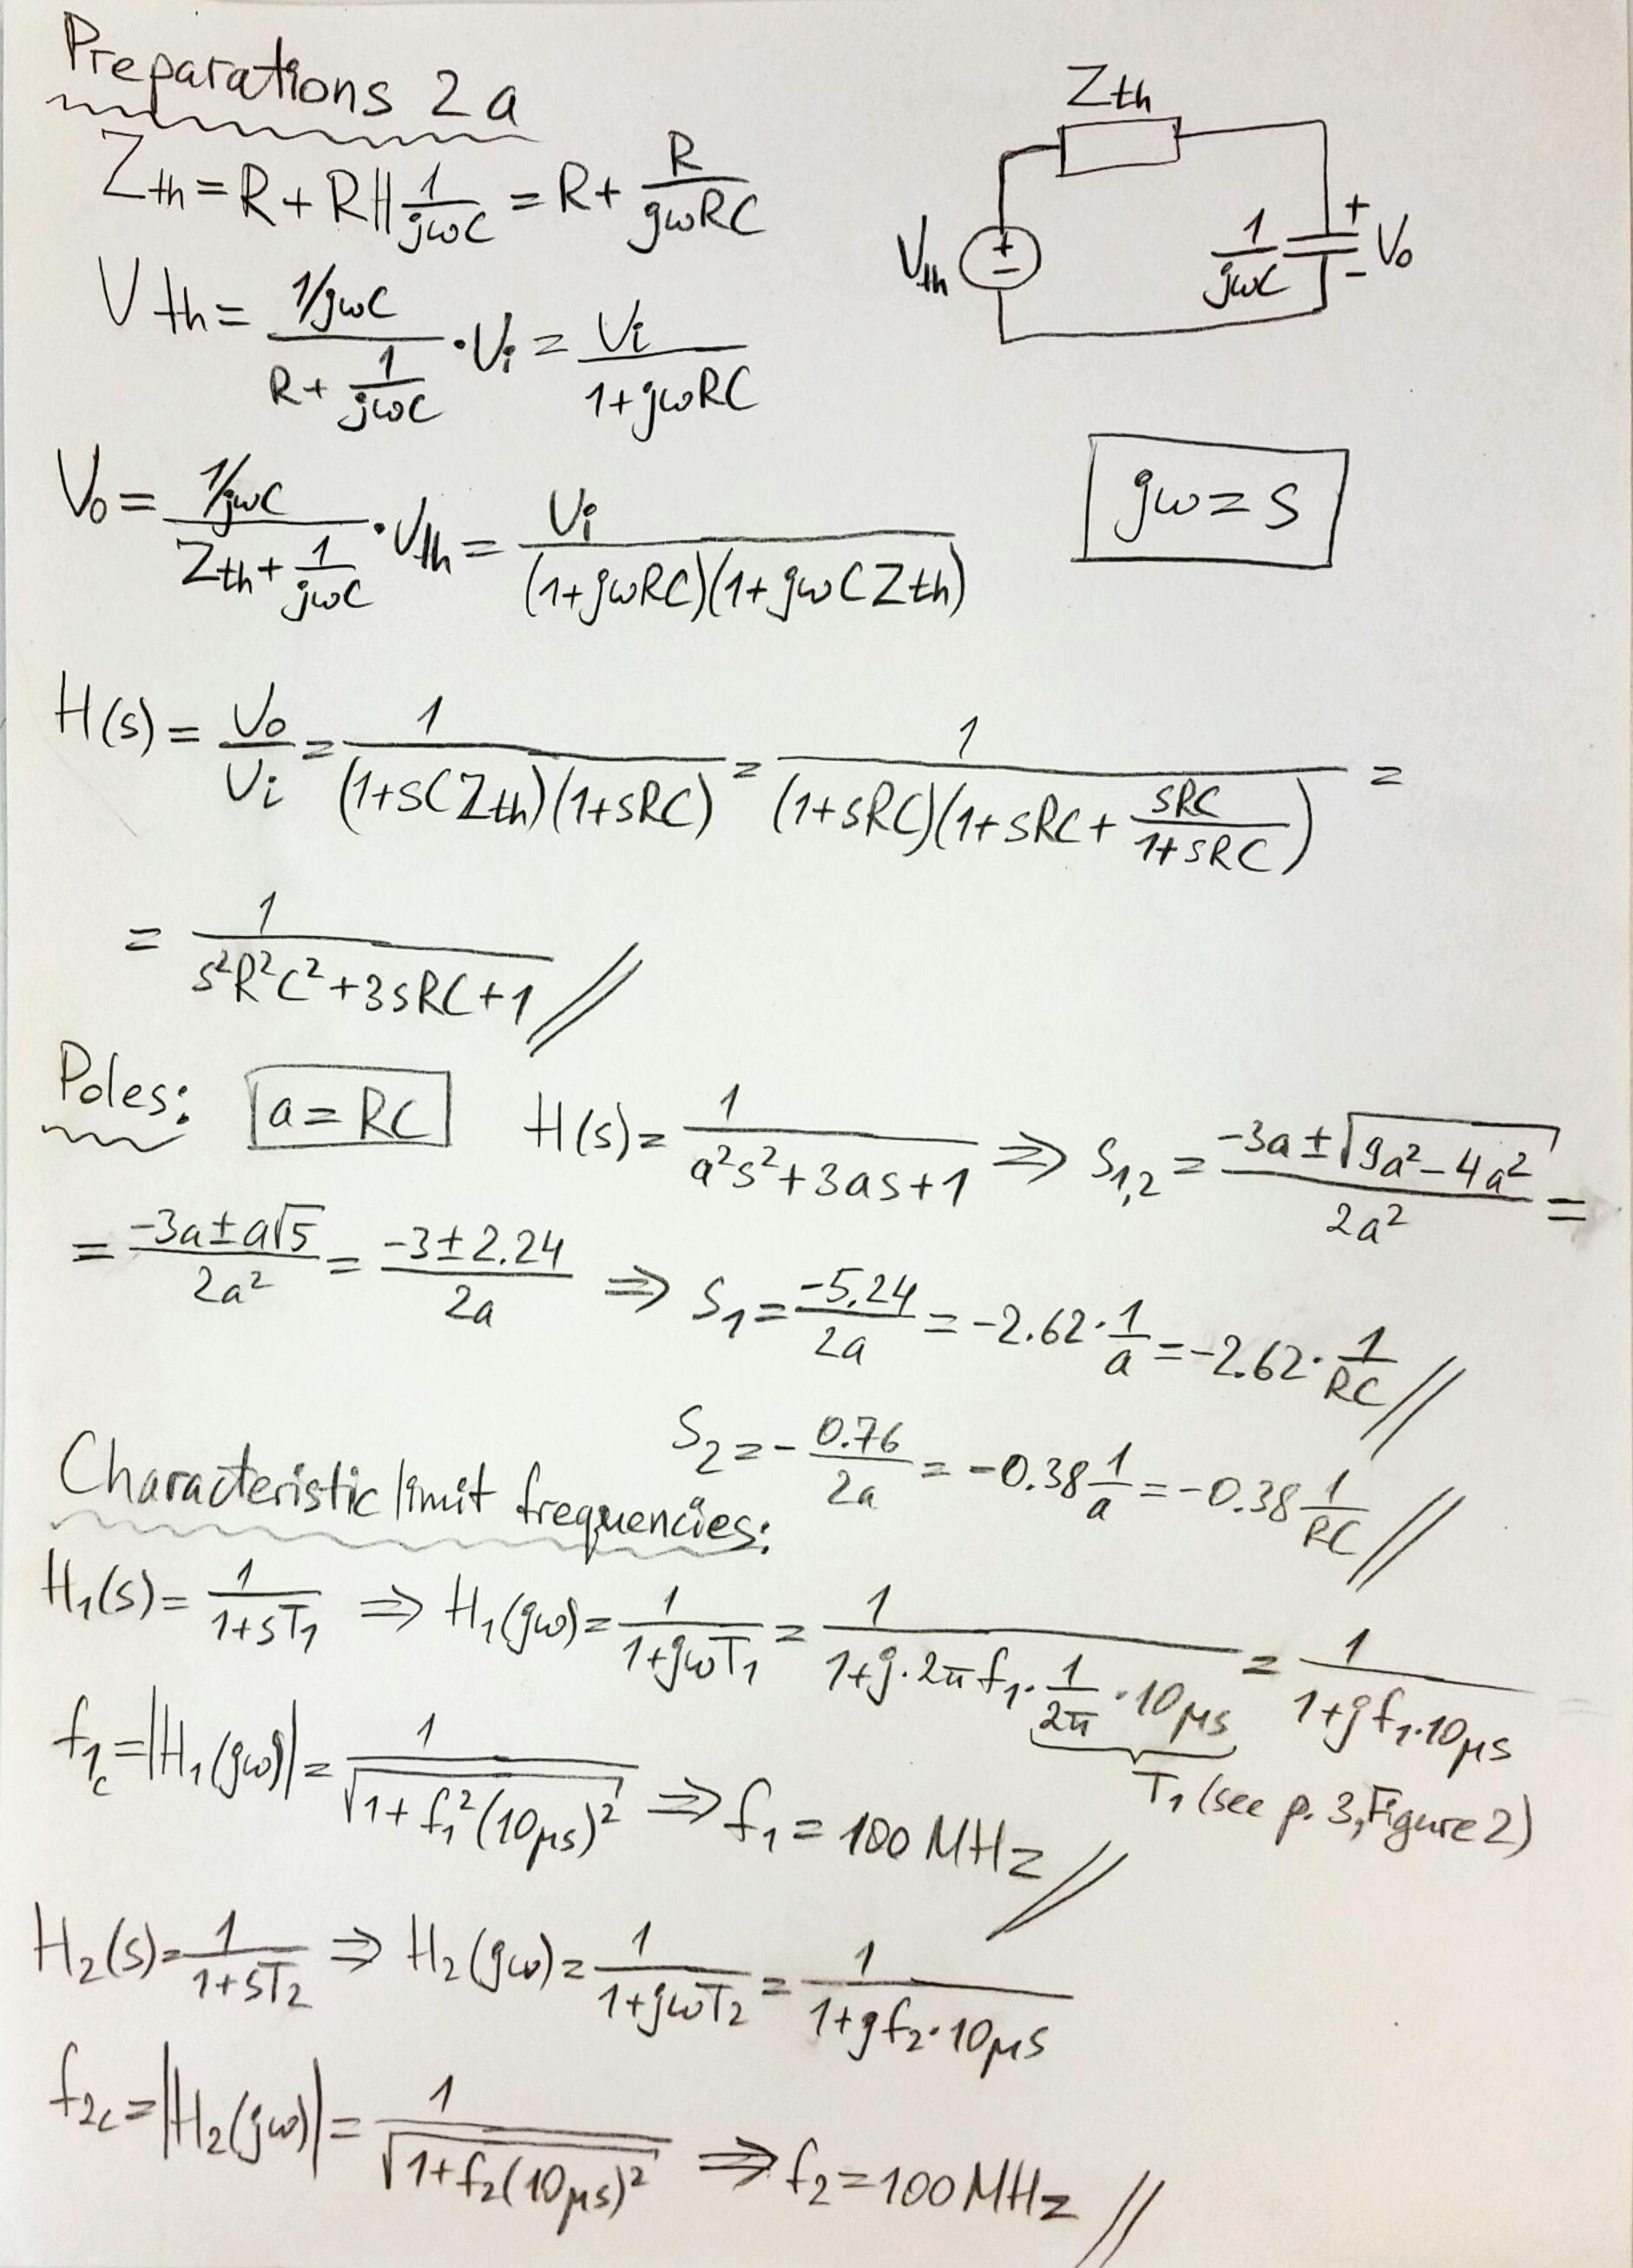 Preparations 2a
Zth = R + R || 1/jωC = R + R/jωRC
Vth = (1/jωC)/(R + 1/jωC) · Vi = Vi/(1+jωRC)
Zth
Vth + −
1/jωC
+ − Vo
Vo = (1/jωC)/(Zth + 1/jωC) · Vth = Vi/((1+jωRC)(1+jωCZth))
jω = s
H(s) = Vo/Vi = 1/((1+sCZth)(1+sRC)) = 1/((1+sRC)(1+sRC + sRC/(1+sRC))) =
= 1/(s²R²C²+3sRC+1) //
Poles: a = RC H(s) = 1/(a²s²+3as+1) ⇒ S1,2 = (-3a ± √(9a²-4a²))/2a² =
= (-3a ± a√5)/2a² = (-3 ± 2.24)/2a ⇒ S1 = -5.24/2a = -2.62 · 1/a = -2.62 · 1/RC //
S2 = - 0.76/2a = -0.38 1/a = -0.38 1/RC //
Characteristic limit frequencies:
H1(s) = 1/(1+sT1) ⇒ H1(jω) = 1/(1+jωT1) = 1/(1+j·2πf1·1/2π·10μs) = 1/(1+jf1·10μs)
T1 (see p. 3, Figure 2)
f1c = |H1(jω)| = 1/√(1+f1²(10μs)²) ⇒ f1 = 100 MHz //
H2(s) = 1/(1+sT2) ⇒ H2(jω) = 1/(1+jωT2) = 1/(1+jf2·10μs)
f2c = |H2(jω)| = 1/√(1+f2(10μs)²) ⇒ f2 = 100 MHz //